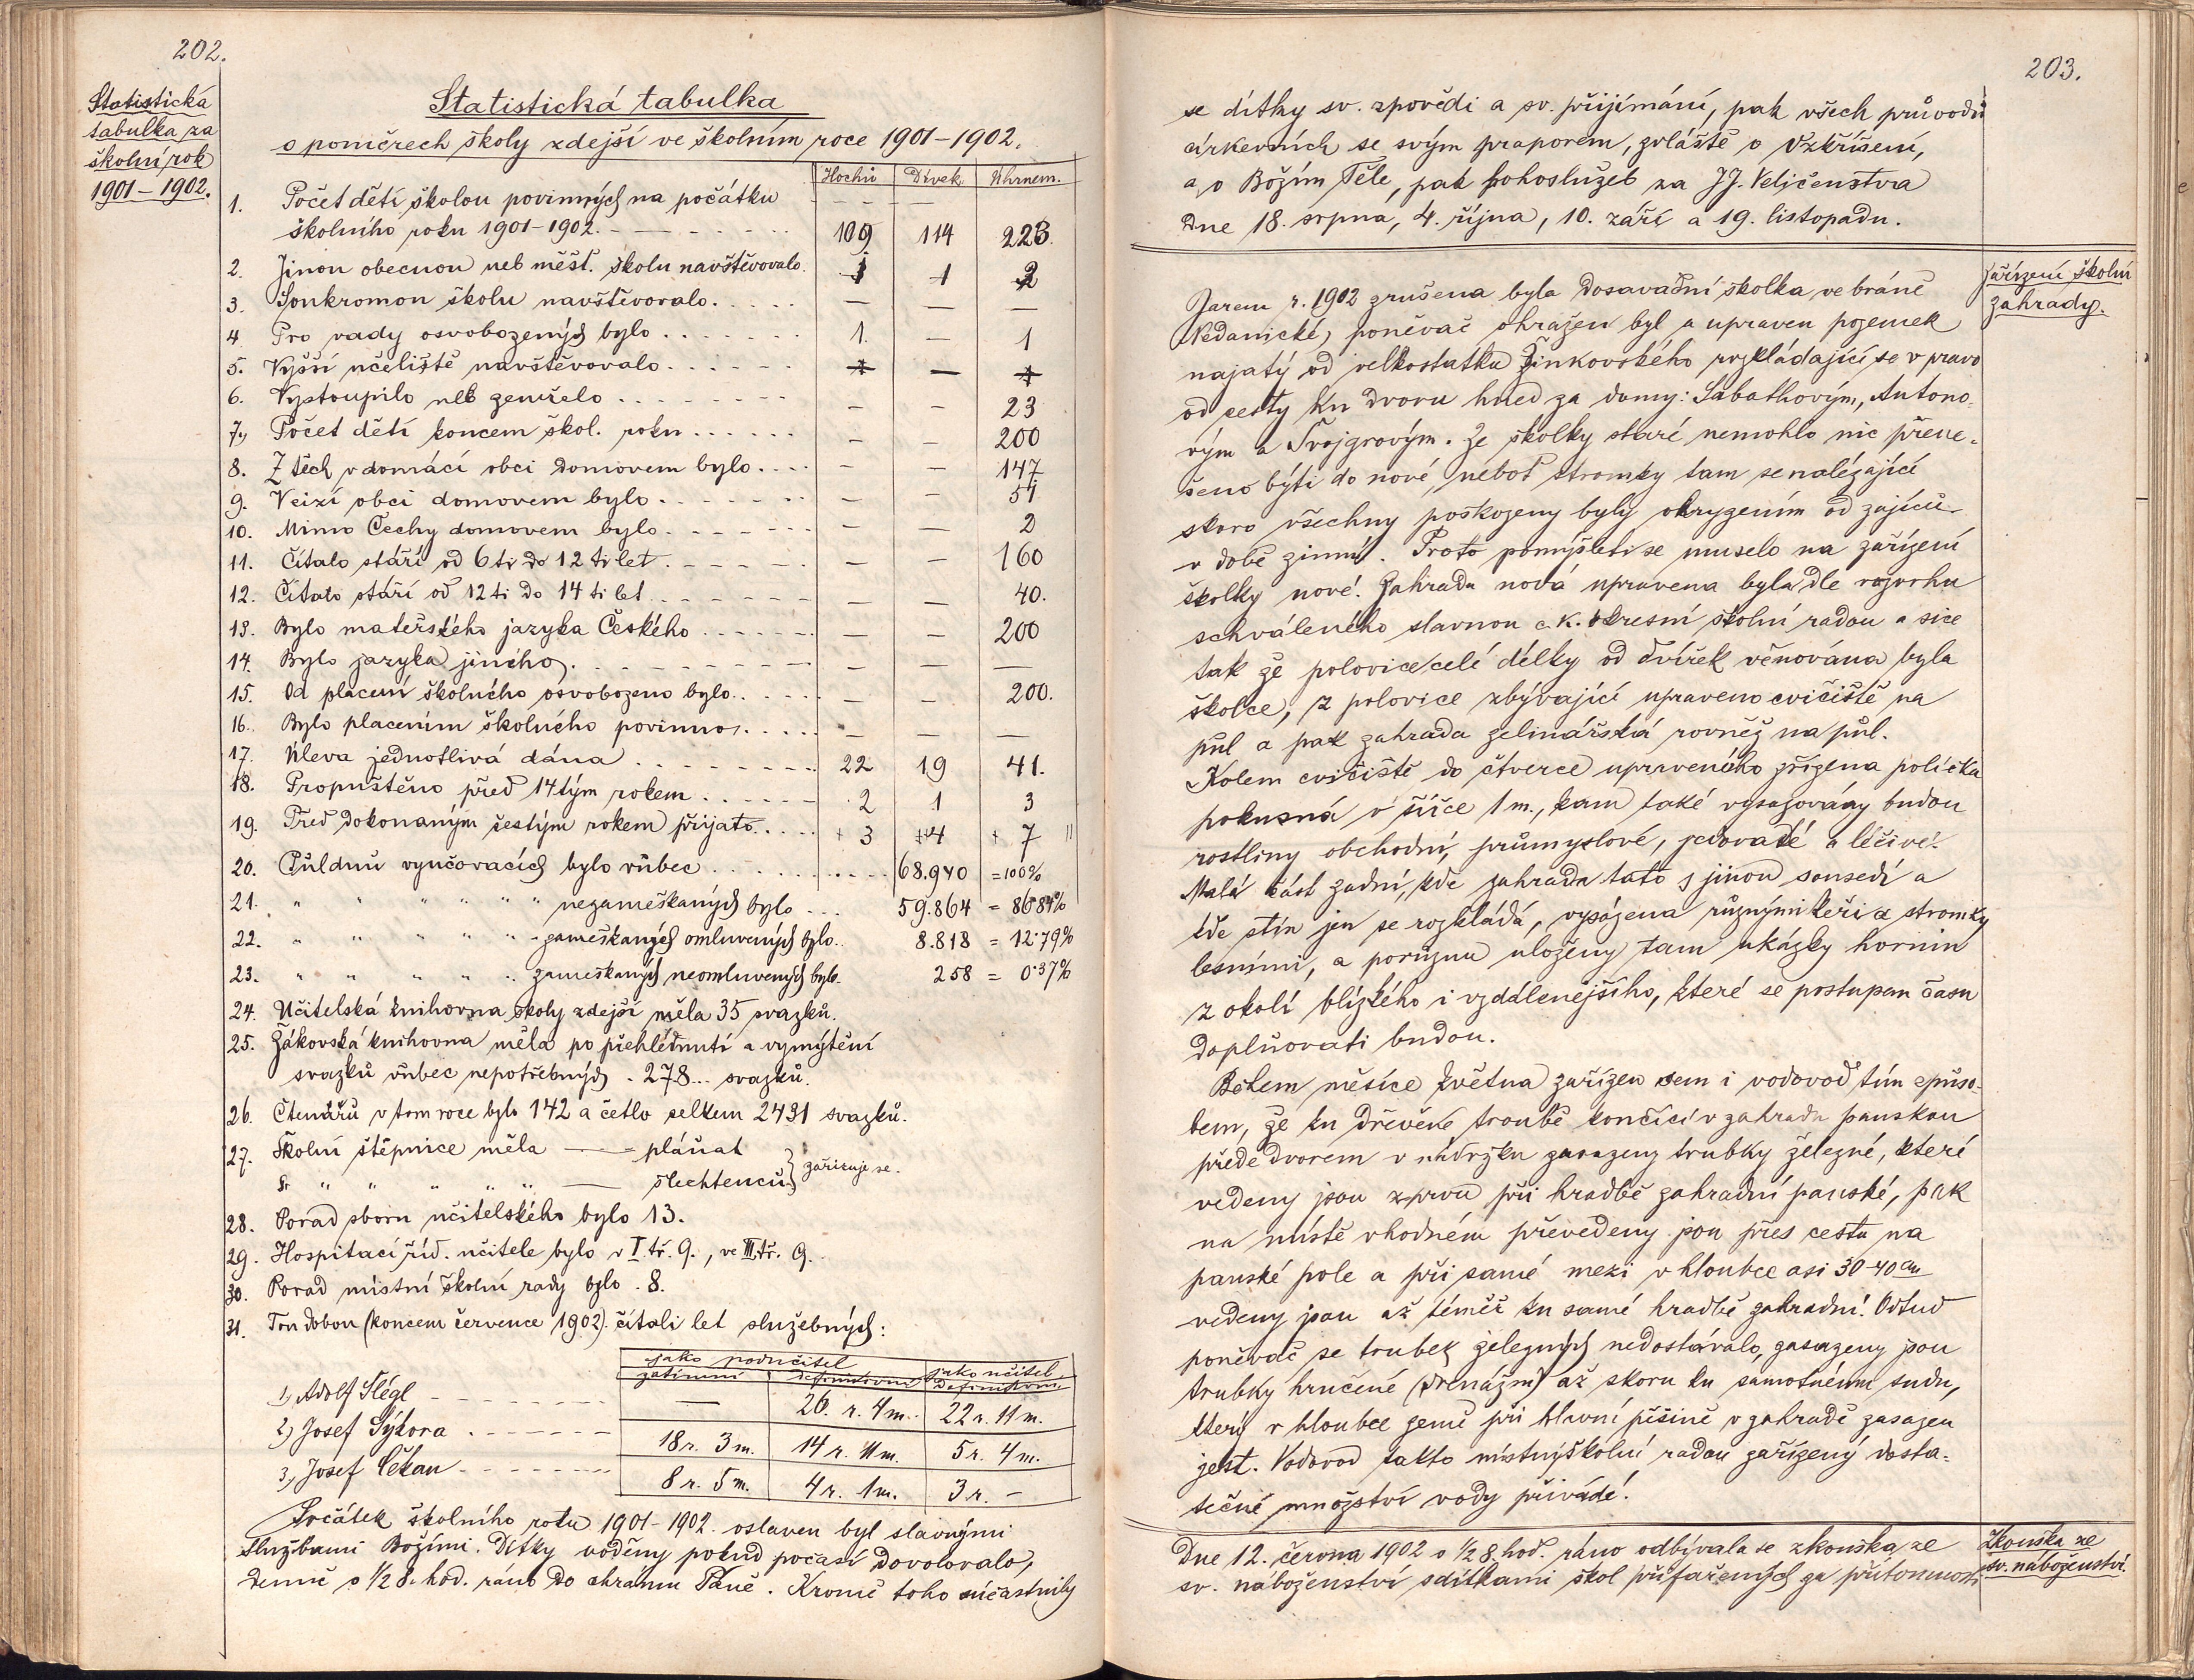 202.
Statistická
tabulka za
školní rok
1901–1902.
Statistická tabulka
o poměrech školy zdejší ve školním roce 1901–1902.
Hochů Dívek Úhrnem.
1. Počet dětí školou povinných na počátku
školního roku 1901–1902. 109 114 223.
2. Jinou obecnou neb měšť. školu navštěvovalo. 1 1 2
3. Soukromou školu navštěvovalo. — — —
4. Pro vady osvobozených bylo 1. — 1
5. Vyšší učeliště navštěvovalo —
6. Vystoupilo neb zemřelo – – 23
7., Počet dětí koncem škol. roku – – 200
8. Z těch v domácí obci domovem bylo. – – 147
9. V cizí obci domovem bylo – – 51
10. Mimo Čechy domovem bylo – – 2
11. Čítalo stáří od 6 ti do 12 ti let – – 160
12. Čítalo stáří od 12 ti do 14 ti let – – 40.
13. Bylo mateřského jazyka Českého – – 200
14. Bylo jazyka jiného. – – —
15. Od placení školného osvobozeno bylo – – 200.
16. Bylo placením školného povinno. – – —
17. Úleva jednotlivá dána 22 19 41.
18. Propuštěno před 14tým rokem 2 1 3
19. Před dokonaným šestým rokem přijato. + 3 + 4 + 7
20. Půldnů vyučovacích bylo vůbec 68.940 = 100%
21. " " " " " nezameškaných bylo 59.864 = 86·84%
22. " " " " " zameškaných omluvených bylo. 8.818 = 12·79%
23. " " " " " zameškaných neomluvených bylo. 258 = 0·37%
24. Učitelská knihovna školy zdejší měla 35 svazků.
25. Žákovská knihovna měla po přehlédnutí a vymýtění
svazků vůbec nepotřebných . 278... svazků.
26. Čtenářů v tom roce bylo 142 a četlo celkem 2431 svazků.
27. Školní štěpnice měla —— pláňat
" " " " " —— šlechtenců } zařizuje se.
28. Porad sboru učitelského bylo 13.
29. Hospitací říd. učitele bylo v I. tř. 9., ve III. tř. 9.
30. Porad místní školní rady bylo . 8.
31. Tou dobou (koncem července 1902). čítali let služebných:
jako podučitel jako učitel
zatímní definitivní definitivní
1) Adolf Šlégl — 26. r. 4 m. 22 r. 11 m.
2) Josef Sýkora 18 r. 3 m. 14 r. 11 m. 5 r. 4 m.
3) Josef Čekan 8 r. 5 m. 4 r. 1 m. 3 r. –
Počátek školního roku 1901–1902. oslaven byl slavnými
Službami Božími. Dítky voděny pokud počasí dovolovalo,
denně o 1/2 8. hod. ráno do chrámu Páně. Kromě toho súčastnily
203.
se dítky sv. zpovědi a sv. přijímání, pak všech průvodů
církevních se svým praporem, zvláště o Vzkříšení,
a o Božím Těle, pak bohoslužeb za JJ. Veličenstva
Dne 18. srpna, 4. října, 10. září a 19. listopadu.
Zařízení školní
zahrady.
Jarem r. 1902 zrušena byla dosavadní školka ve bráně
Nedanické, poněvač ohražen byl a upraven pozemek
najatý od velkostatku Žinkovského rozkládající se v pravo
od cesty ku dvoru hned za domy: Sabathovým, Antono-
vým a Trojgrovým. Ze školky staré nemohlo nic přene-
šeno býti do nové, neboť stromky tam se nalézající
skoro všechny poškozeny byly okryzením od zajíců
v době zimní. Proto pomýšleti se muselo na zařízení
školky nové. Zahrada nová upravena byla dle rozvrhu
schváleného slavnou c. k. okresní školní radou a sice
tak že polovice celé délky od dvířek věnována byla
školce, z polovice zbývající upraveno cvičiště na
půl a pak zahrada zelinářská rovněž na půl.
Kolem cvičiště do čtverce upraveného zřízena políčka
pokusná v šířce 1 m., kam také vysazovány budou
rostliny obchodní, průmyslové, jedovaté a léčivé.
Malá část zadní, kde zahrada tato s jinou sousedí a
kde stín jen se rozkládá, vysázena různými keři a stromky
lesními, a porůznu uloženy tam ukázky hornin
z okolí blízkého i vzdálenějšího, které se postupem času
doplňovati budou.
Během měsíce května zařízen sem i vodovod tím způso-
bem, že ku dřevěné troubě končící v zahradu panskou
přede dvorem v nádržku zasazeny trubky železné, které
vedeny jsou zprvu při hradbě zahradní panské, pak
na místě vhodném převedeny jsou přes cestu na
panské pole a při samé mezi v hloubce asi 30–40 cm
vedeny jsou až téměř ku samé hradbě zahradní. Odtud
poněvač se trubek železných nedostávalo, zasazeny jsou
trubky hrnčené (drenážní) až skoru ku samotnému sudu,
který v hloubce země při hlavní pěšině v zahradě zasazen
jest. Vodovod takto místní školní radou zařízený dosta-
tečné množství vody přivádí.
Zkouška ze
sv. náboženství.
Dne 12. června 1902 o 1/2 8. hod. ráno odbývala se zkouška ze
sv. náboženství s dítkami škol přifařených za přítomnosti